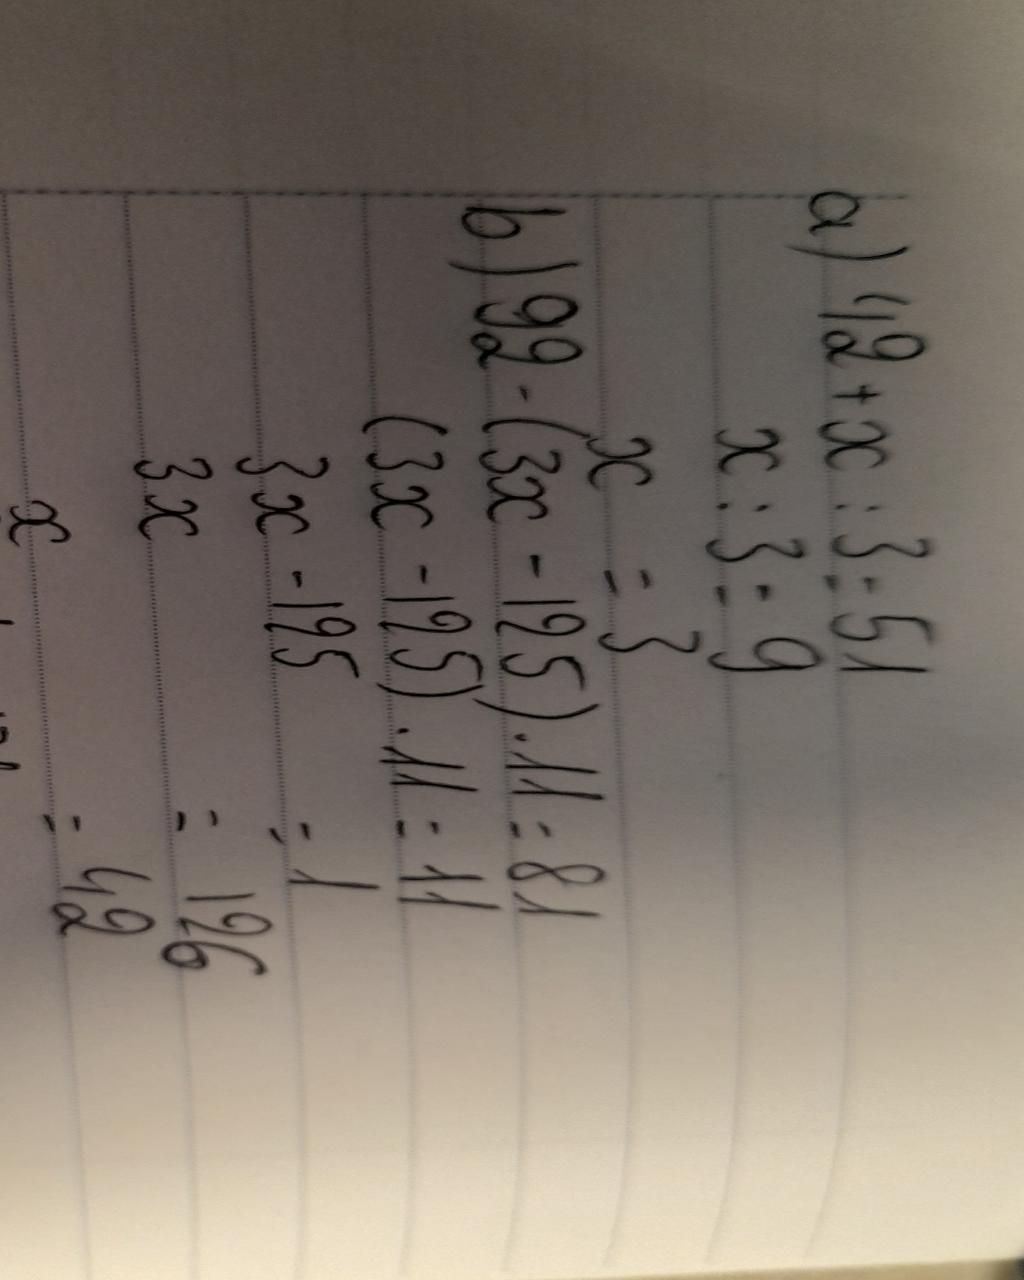 a) 42 + x : 3 = 51
x : 3 = 9
x = 3
b) 92 - (3x - 125) . 11 = 81
(3x - 125) . 11 = 11
3x - 125 = 1
3x = 126
x = 42